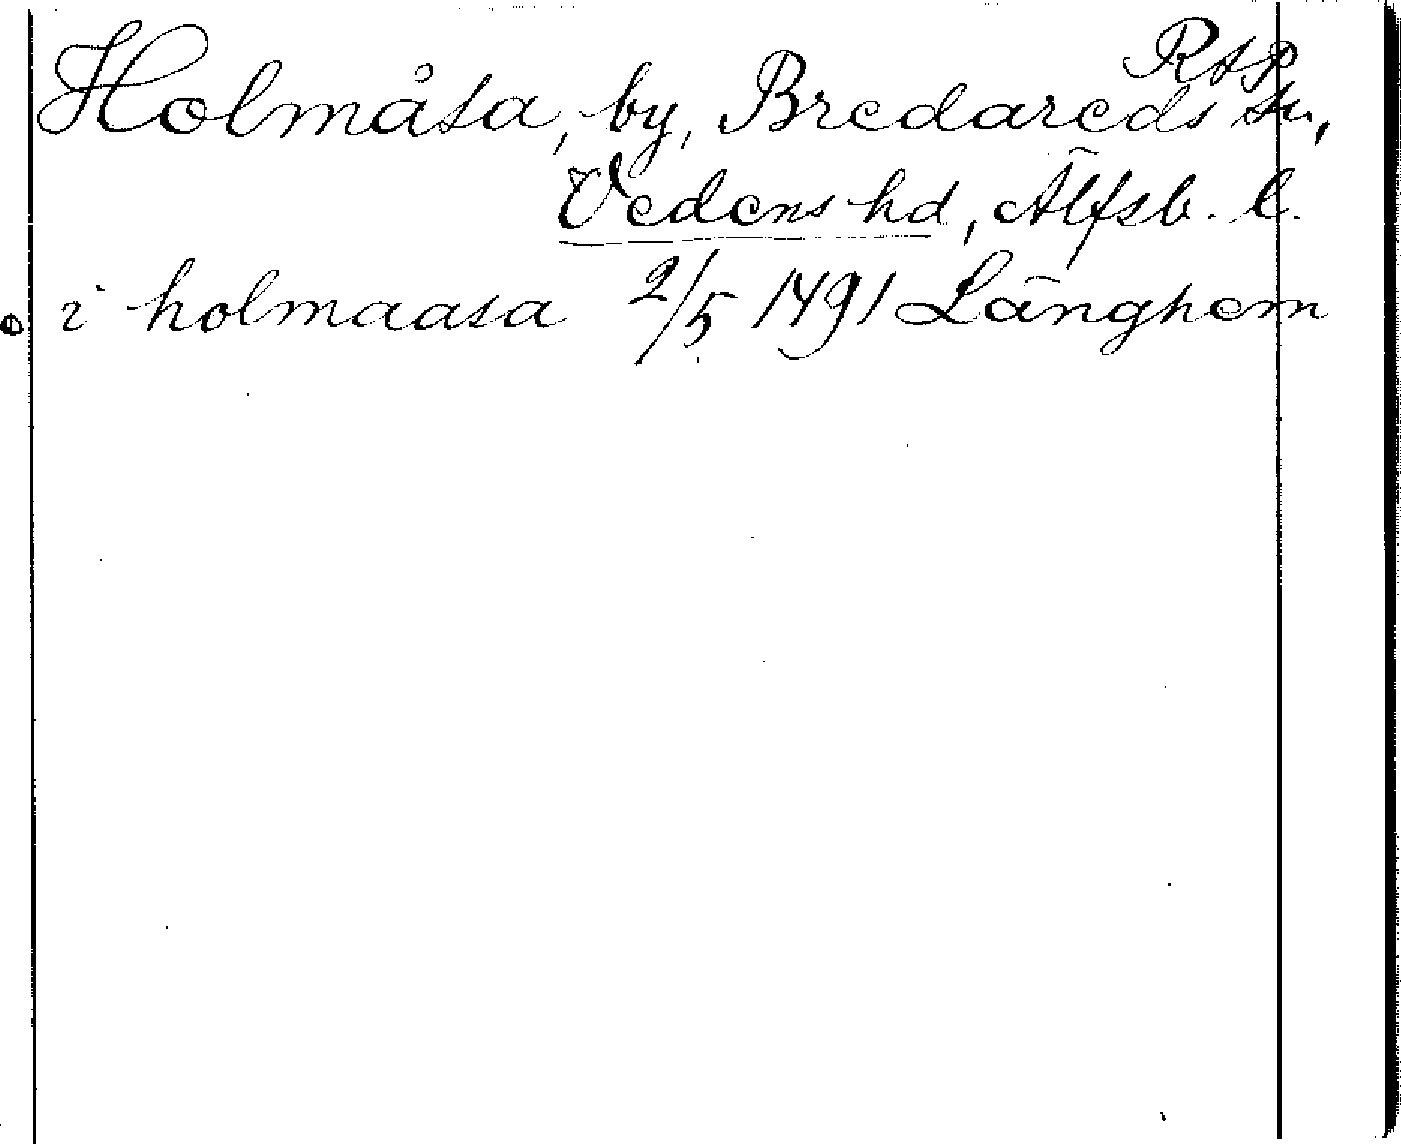 RAP
Holmåsa, by, Bredareds sn,
Vedens hd, Älfsb. l.
i holmaasa 2/5 1491 Länghem